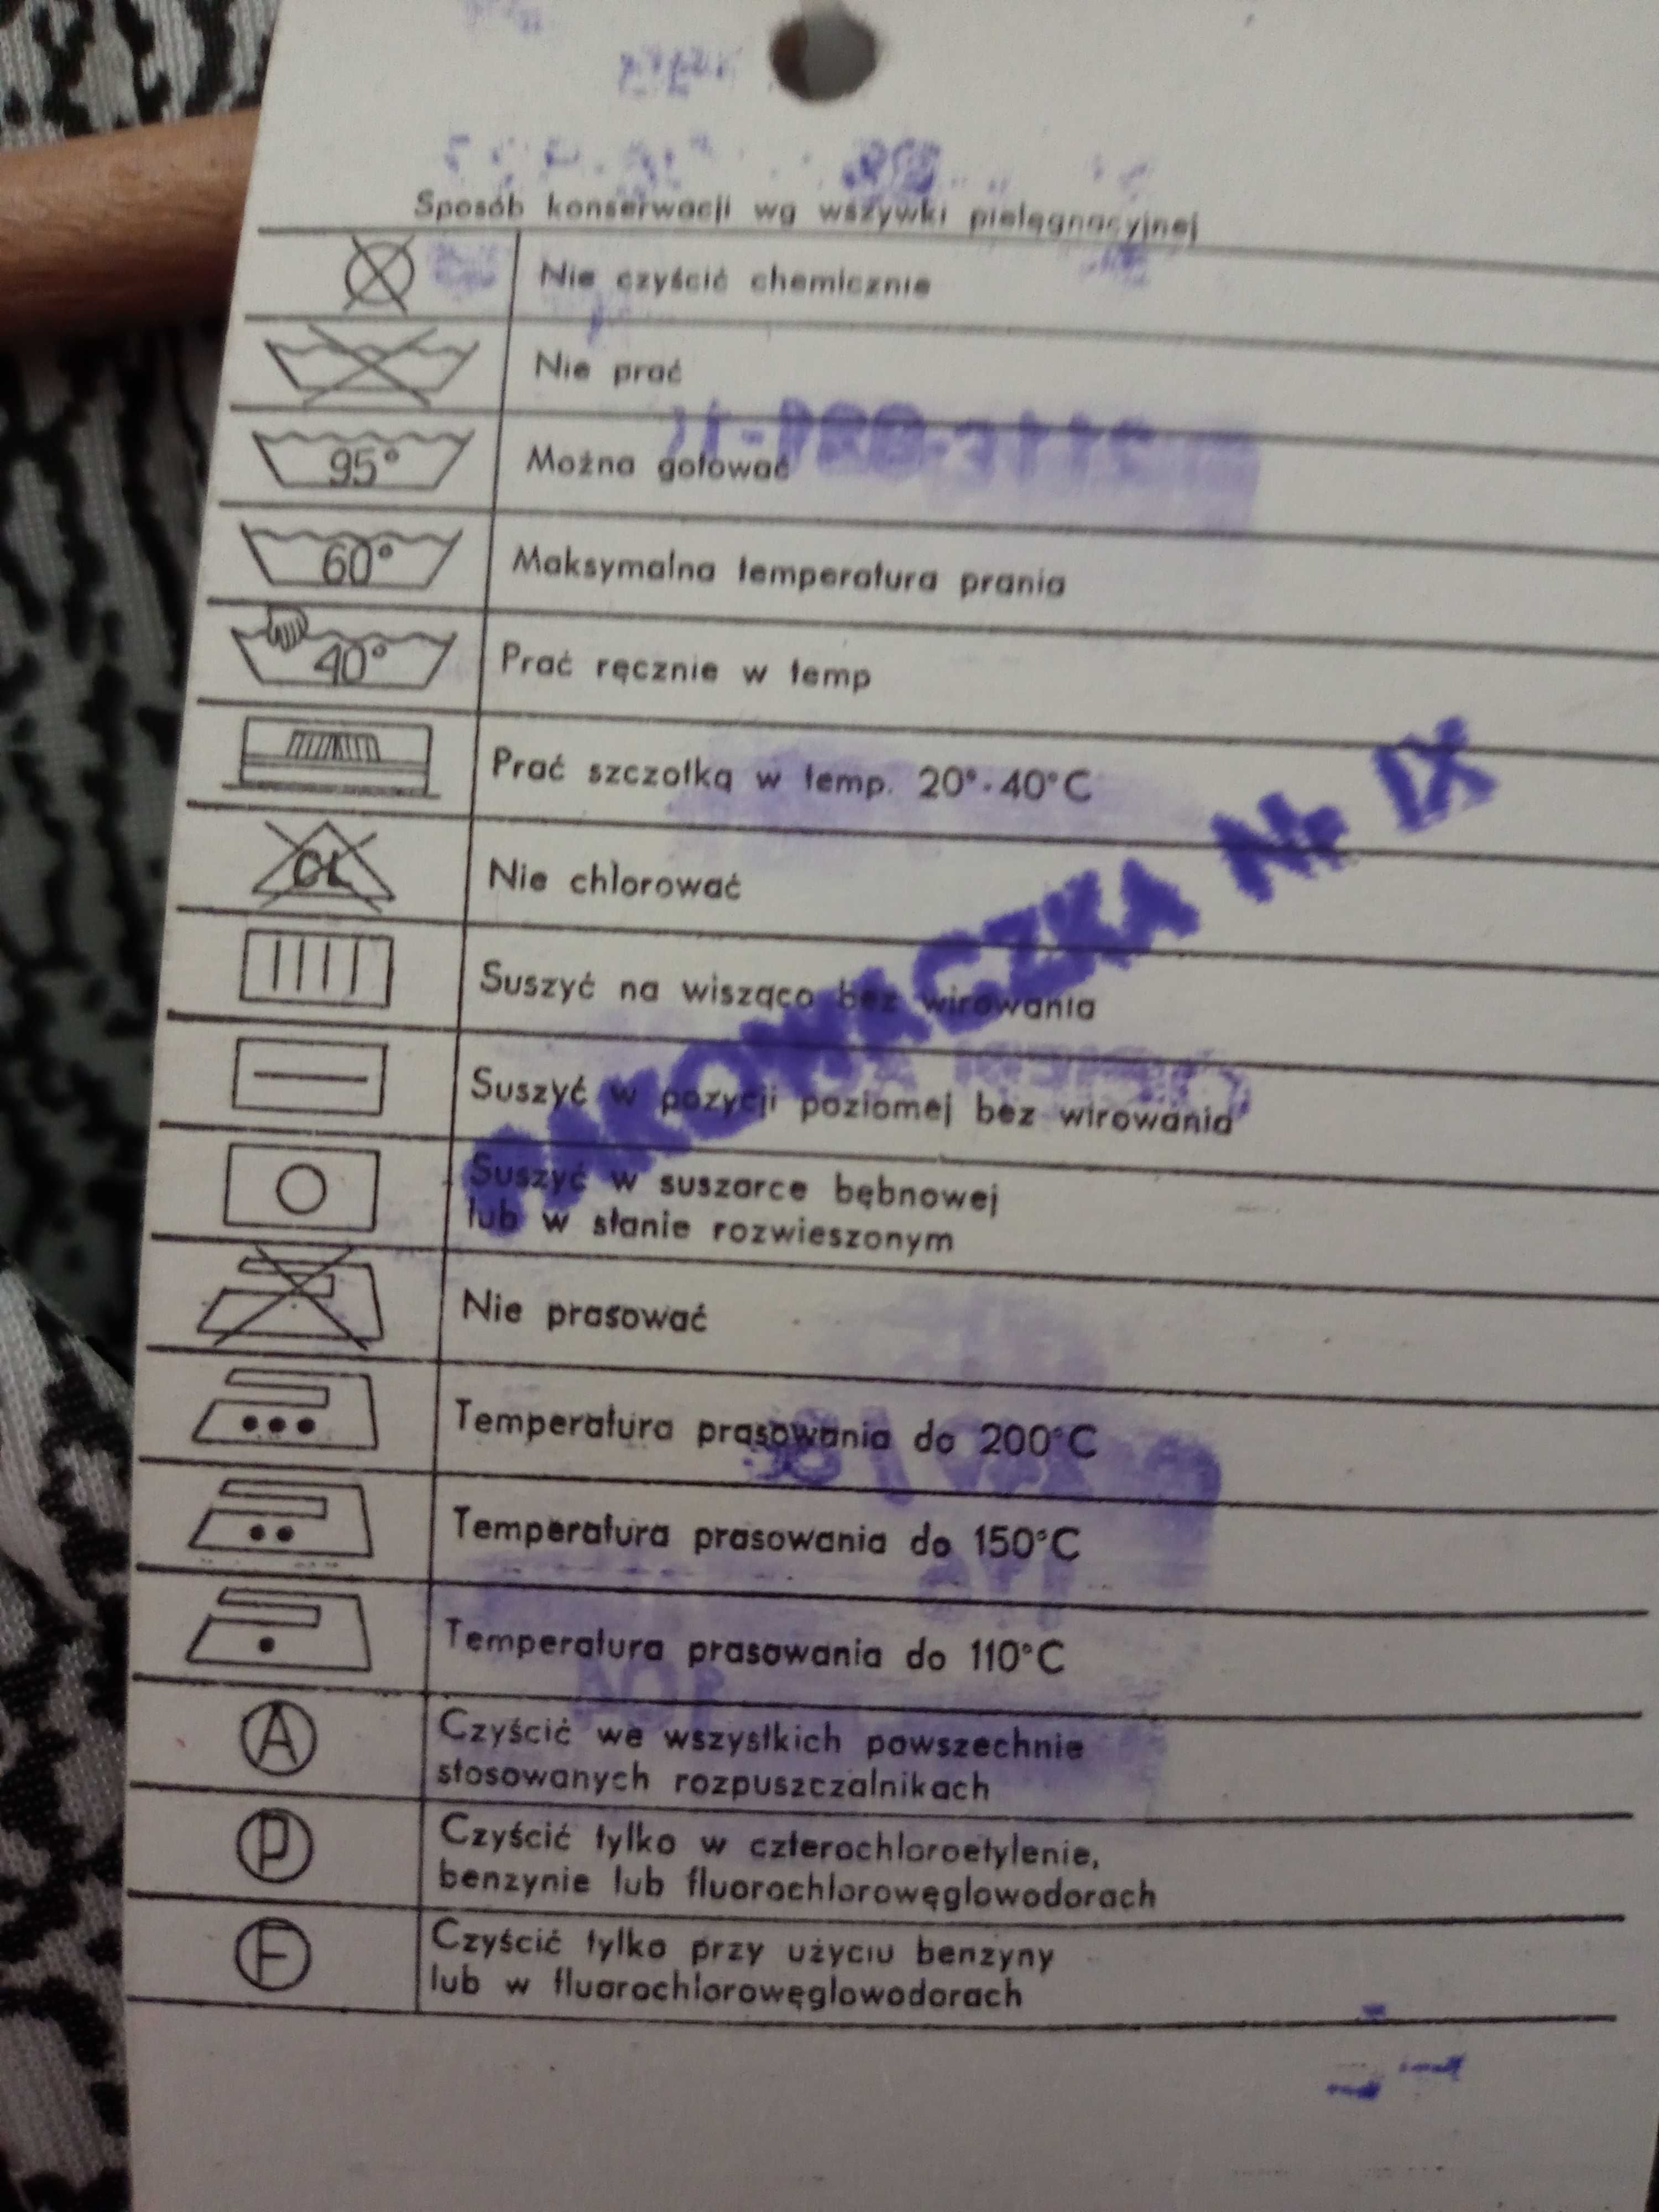 Sposób konserwacji wg wszywki pielęgnacyjnej
Nie czyścić chemicznie
Nie prać
95° Można gotować
60° Maksymalna temperatura prania
40° Prać ręcznie w temp
Prać szczotką w temp. 20°-40°C
CL Nie chlorować
Suszyć na wisząco bez wirowania
Suszyć w pozycji poziomej bez wirowania
Suszyć w suszarce bębnowej
lub w stanie rozwieszonym
Nie prasować
Temperatura prasowania do 200°C
Temperatura prasowania do 150°C
Temperatura prasowania do 110°C
A Czyścić we wszystkich powszechnie
stosowanych rozpuszczalnikach
P Czyścić tylko w czterochloroetylenie,
benzynie lub fluorochlorowęglowodorach
F Czyścić tylko przy użyciu benzyny
lub w fluorochlorowęglowodorach
PAKOWACZKA Nr IX